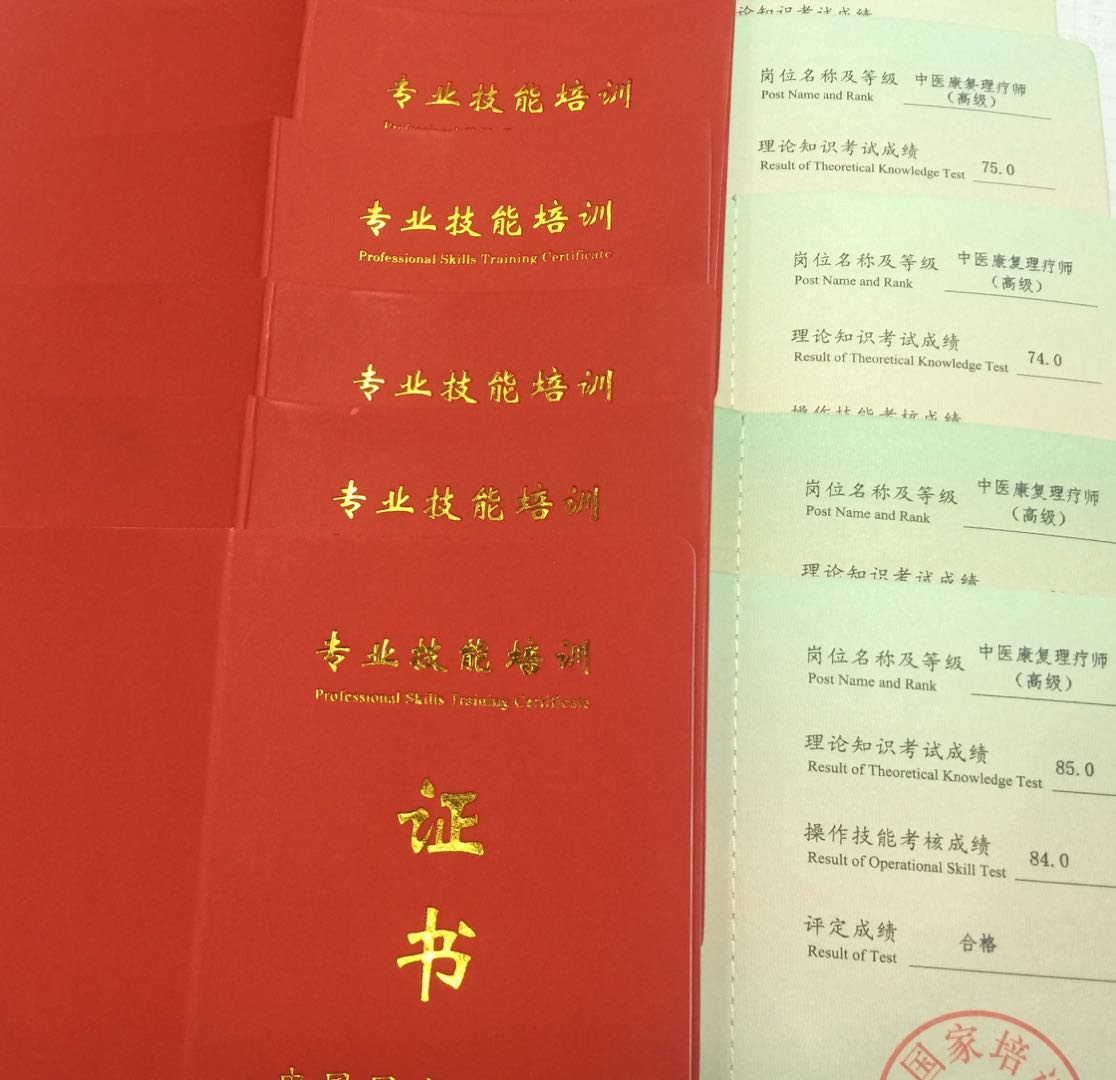 专业技能培训
专业技能培训
Professional Skills Training Certificate
专业技能培训
专业技能培训
专业技能培训
Professional Skills Training Certificate
证
书
理论知识考试成绩
岗位名称及等级 中医康复理疗师
Post Name and Rank （高级）
理论知识考试成绩
Result of Theoretical Knowledge Test 75.0
岗位名称及等级 中医康复理疗师
Post Name and Rank （高级）
理论知识考试成绩
Result of Theoretical Knowledge Test 74.0
操作技能考核成绩
岗位名称及等级 中医康复理疗师
Post Name and Rank （高级）
理论知识考试成绩
岗位名称及等级 中医康复理疗师
Post Name and Rank （高级）
理论知识考试成绩
Result of Theoretical Knowledge Test 85.0
操作技能考核成绩
Result of Operational Skill Test 84.0
评定成绩 合格
Result of Test
国家培